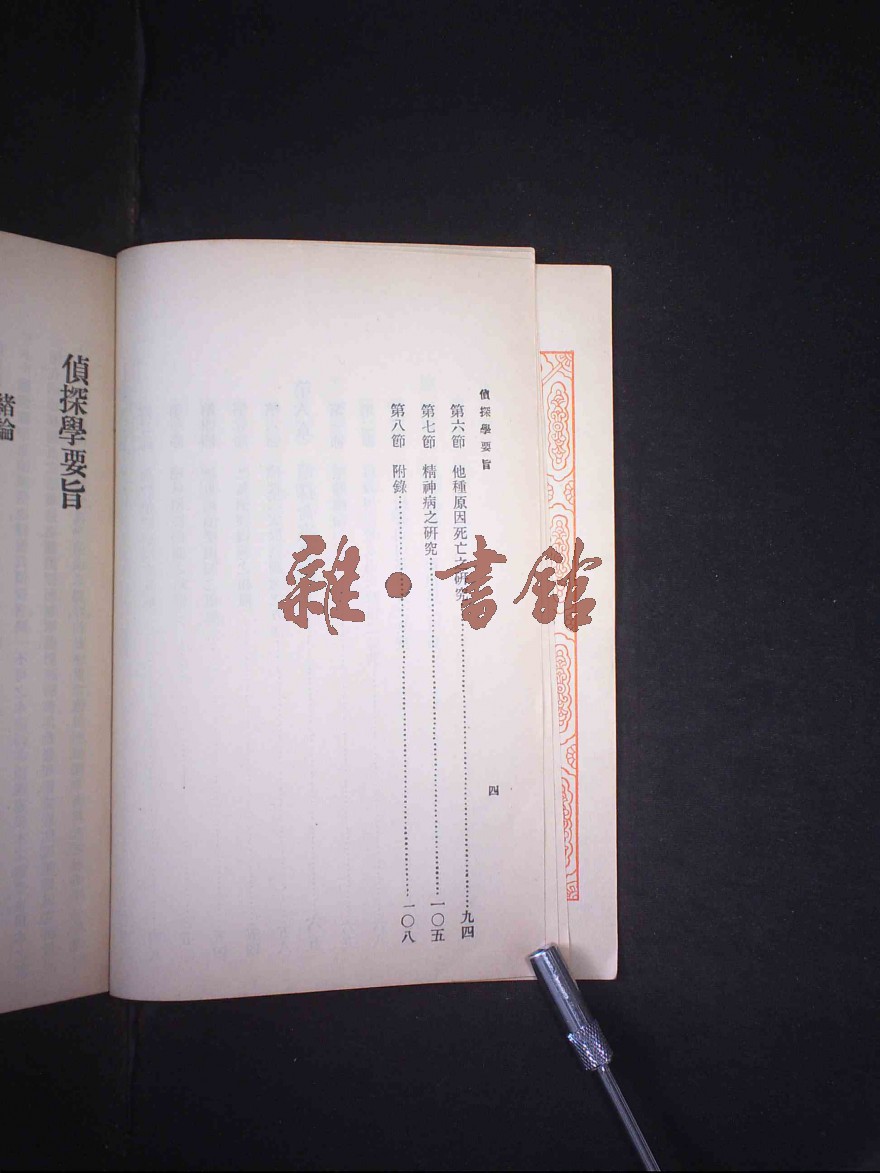 偵探學要旨
四
第六節　他種原因死亡之研究……九四
第七節　精神病之研究……一〇五
第八節　附錄……一〇八
偵探學要旨
緒論
雜·書館